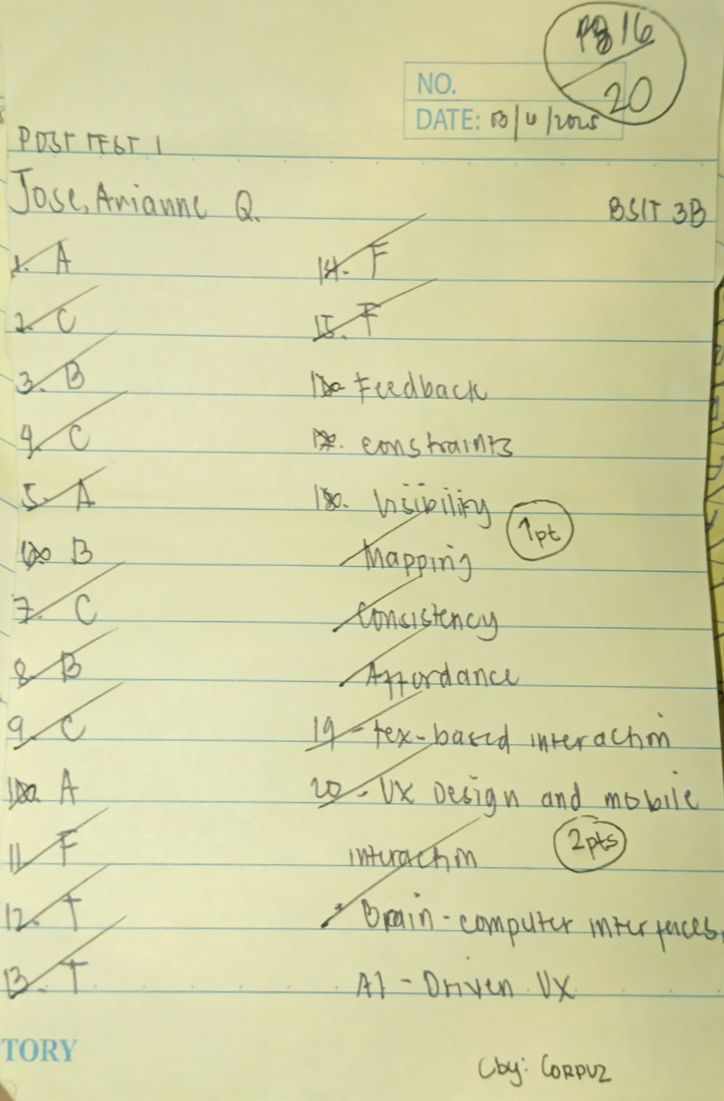 16
20
NO.
DATE: 03/4/2025
POST TEST 1
Jose, Arianne Q.
BSIT 3B
1. A
2. C
3. B
4. C
5. A
6. B
7. C
8. B
9. C
10. A
11. F
12. T
13. T
14. F
15. F
16. Feedback
17. constraints
18. Visibility
1pt
Mapping
Consistency
Affordance
19 - tex-based interaction
20 - UX Design and mobile
interaction
2pts
Brain-computer interfaces,
AI - Driven UX
TORY
Cby: CORPUZ